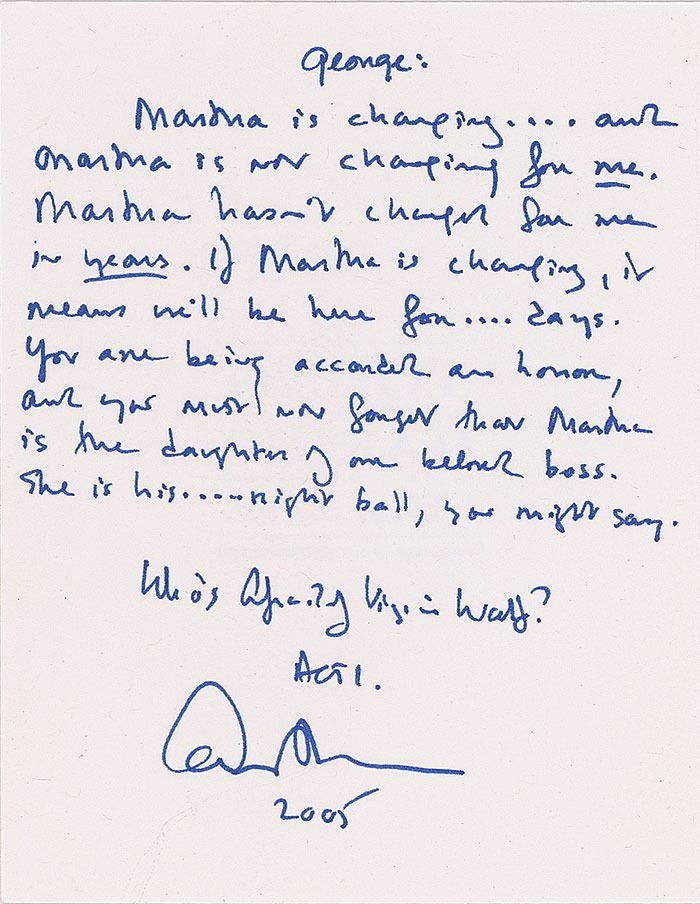 George:
Martha is changing.... and
Martha is not changing for me.
Martha hasn't changed for me
in years. If Martha is changing, it
means we'll be here for.... days.
You are being accorded an honor,
and you must not forget that Martha
is the daughter of our beloved boss.
She is his.....right ball, you might say.
Who's Afraid of Virginia Woolf?
Act 1.
2005